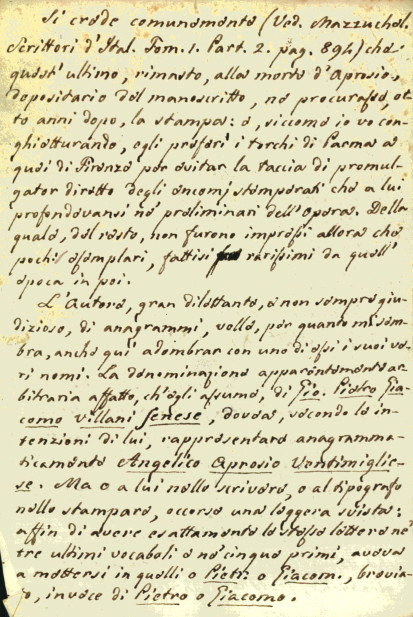 Si crede comunemente (Ved. Mazzuchel.
Scrittori d'Ital. Tom. 1. Part. 2. pag. 894) che
quest'ultimo, rimasto, alla morte d'Aprosio,
depositario del manoscritto, ne procurasse, ot-
to anni dopo, la stampa: e, siccome io vo con-
ghietturando, egli preferì i torchi di Parma a
quei di Firenze per evitar la taccia di promul-
gator diretto degli encomj stemperati che a lui
profondevansi ne' preliminari dell'Opera. Della
quale, del resto, non furono impressi allora che
pochi esemplari, fattisi rarissimi da quell'
epoca in poi.
L'Autore, gran dilettante, e non sempre giu-
dizioso, di anagrammi, volle, per quanto mi sem-
bra, anche quì adombrar con uno di essi i suoi ve-
ri nomi. La denominazione apparentemente ar-
bitraria affatto, ch'egli assume, di Gio. Pietro Gia-
como Villani Senese, dovea, secondo le in-
tenzioni di lui, rappresentare anagramma-
ticamente Angelico Aprosio Ventimiglie-
se. Ma o a lui nello scrivere, o al tipografo
nello stampare, occorse una leggera svista:
affin di avere esattamente le stesse lettere ne'
tre ultimi vocaboli e ne' cinque primi, aveva
a mettersi in quelli o Pietr. o Giacom., brevia-
to, invece di Pietro o Giacomo.